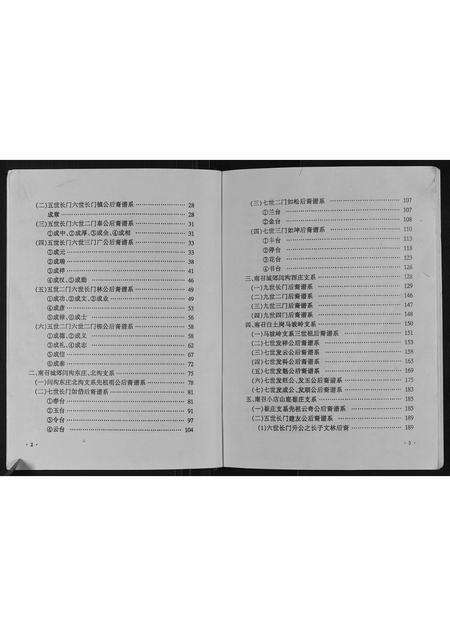 (二)五世长门六世长门镇公后裔谱系 28
成章 28
(三)五世长门六世二门泰公后裔谱系 31
①成中、②成厚、③成央、④成相 31
(四)五世长门六世三门广公后裔谱系 33
①成元 33
②成瑞 38
③成祥 41
④成权、②成勤 46
(五)五世二门六世长门林公后裔谱系 49
①成功、②成文、③成业 49
④成彦 52
⑤成禄、⑥成士 56
(六)五世二门六世二门楷公后裔谱系 58
①成德、②成义 58
③成礼、④成志 62
⑤成信 67
⑥成泰 72
二、南召城郊闫沟东庄、北沟支系 75
(一)闫沟东庄北沟支系先祖明公后裔谱系 78
(二)七世长门如侑后裔谱系 81
①春台 81
②玉台 91
③令台 97
④云台 104
· 2 ·
(三)七世二门如松后裔谱系 107
①兰台 107
②金台 108
(四)七世三门如坤后裔谱系 110
①斗台 113
②停台 113
③花台 123
④书台 126
三、南召城郊闫沟西庄支系 128
(一)九世长门后裔谱系 129
(二)九世二门后裔谱系 146
(三)九世三门后裔谱系 147
(四)九世四门后裔谱系 149
四、南召白土岗马坡岭支系 150
(一)马坡岭支系三世祖后裔谱系 150
(二)七世发祥公后裔谱系 151
(三)七世发云公后裔谱系 161
(四)七世发科公后裔谱系 165
(五)七世发魁公后裔谱系 167
(六)七世发旺公、发玉公后裔谱系 175
(七)七世发成公、发职公后裔谱系 182
五、南召小店山底崔庄支系 185
(一)崔庄支系先祖云奇公后裔谱系 185
(二)五世长门建友公后裔谱系 189
(1)六世长门升公之长子文林后裔 189
· 3 ·